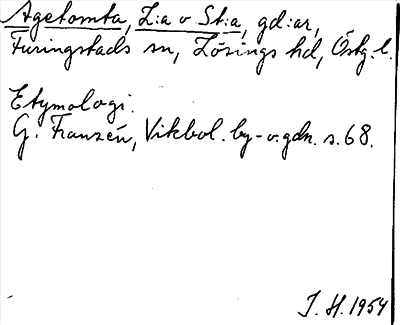 Agetomta, L:a o St:a, gd:ar,
Furingstads sn, Lösings hd, Östg. l.
Etymologi.
G. Franzén, Vikbol. by- o. gdn. s. 68.
J. H. 1954